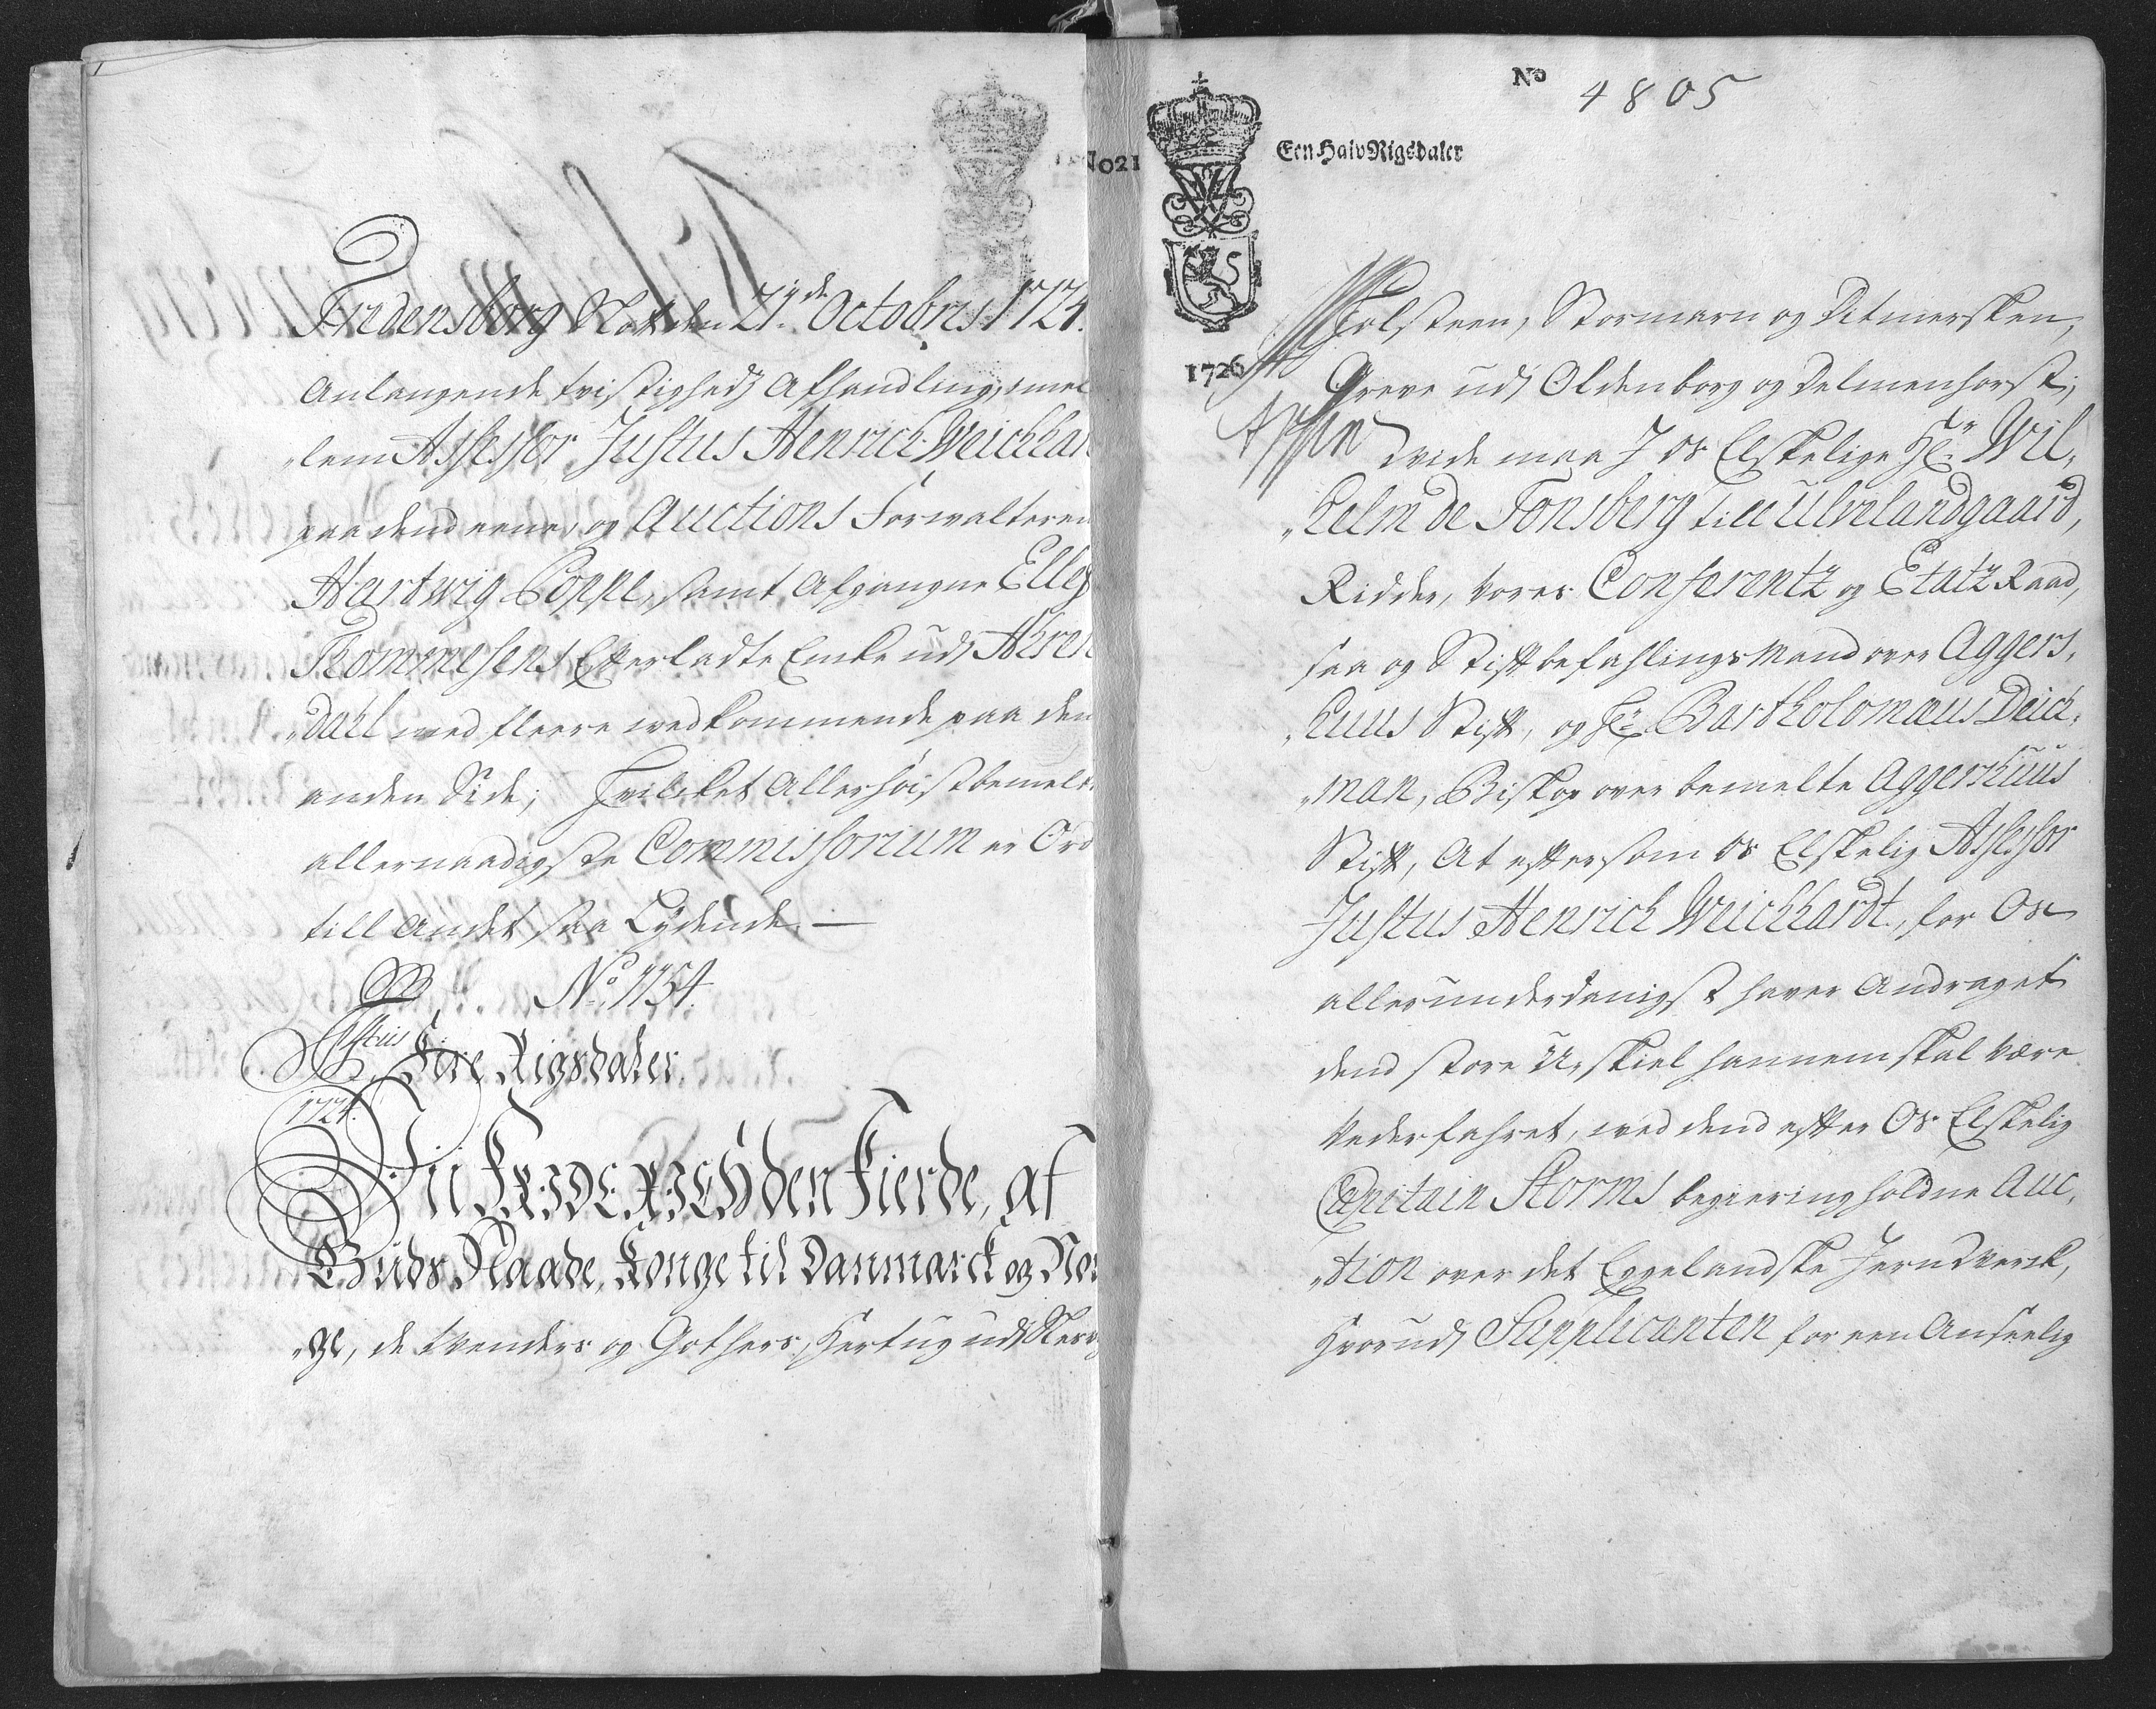 Fredensborg Slott den 21de Octobris 1724.
Anlangende tvistigheds Afhandling, imel
„lem Assessor Justus Henrich Weichhar
paa dend eene, og Auctions Forwalteren
Hartwig Poppe, samt Afgangne Elles
Thommesens Efterladte Encke udj Aeren
„dahl med fleere wedkommende paa den
anden Side; Hvilcket Allerhöistbemelte
allernaadigste Commissorium er Ord
till Andet saa Lydende. —
No. 1154.
Fire Rigsdaler.
1724.
Vii FRIDERICH den Fierde, af
Guds Naade, Konge til Danmarck og Nor
„ge, de Wenders og Gothers, Hertug udj Slesv
No21
No 4805
Een Halv Rigsdaler
1726
Holsteen, Stormarn og Ditmersken,
Greve udj Oldenborg og Delmenhorst;
wide maa I os Elskelige Hr. Wil„
„helm de Tonsberg till Ulvelandgaard,
Ridder, Vores Conferentz og Etatz Raad,
saa og Stiftbefahlings Mand over Aggers„
„huus Stift, og Hr. Bartholomæus Deich„
„man, Biskop over bemelte Aggershuus
Stift, At eftersom os Elskelig Assessor
Justus Henrich Weichhardt, for Os
allerunderdanigst haver Andraget
dend store Uskiel hannem skal være
Vederfahret, ved dend efter Os Elskelig
Capitain Storms begiering holdne Auc„
„tion over det Eggelandske Jernverck,
Hvorudj Supplicanten for een Anseelig